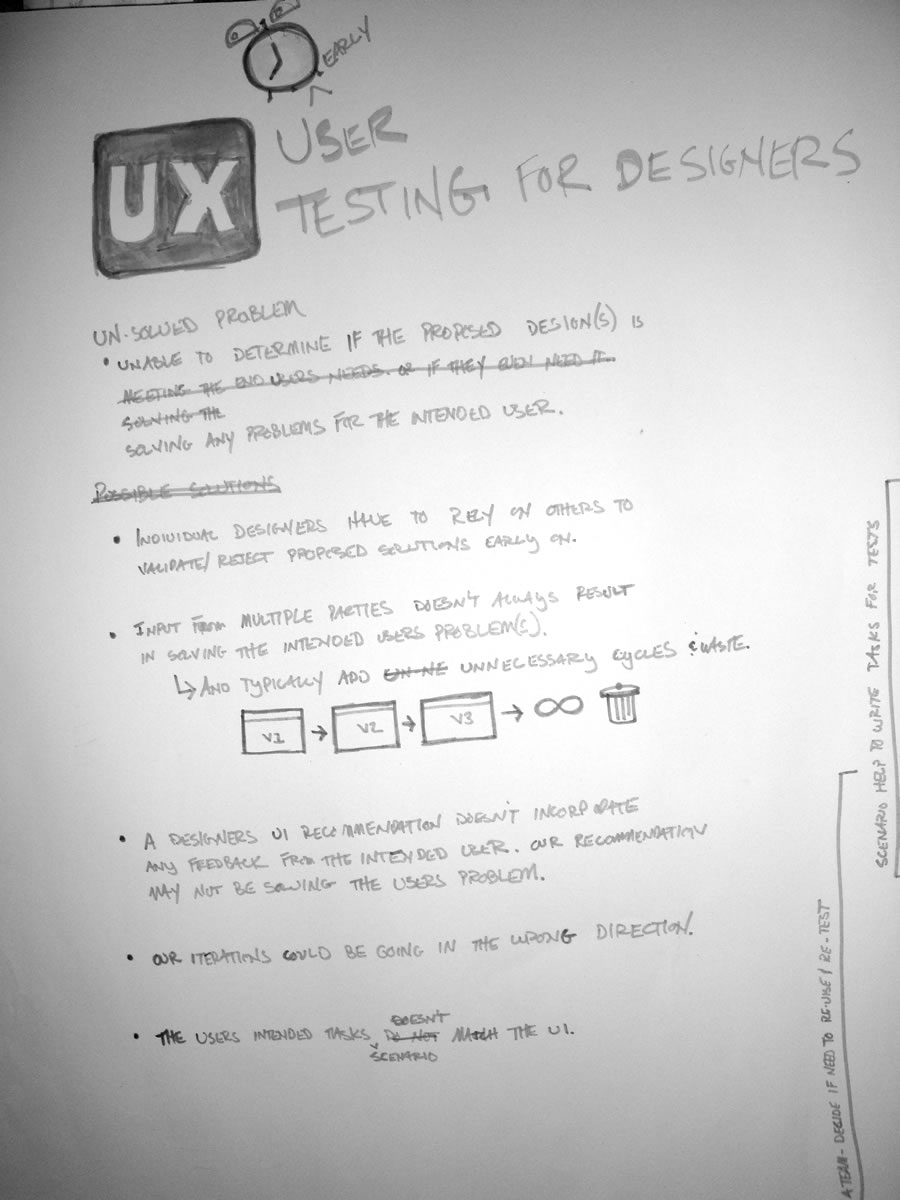 EARLY
UX
USER
TESTING FOR DESIGNERS
UN-SOLVED PROBLEM
• UNABLE TO DETERMINE IF THE PROPOSED DESIGN(S) IS
MEETING THE END USERS NEEDS. OR IF THEY EVEN NEED IT.
SOLVING THE
SOLVING ANY PROBLEMS FOR THE INTENDED USER.
POSSIBLE SOLUTIONS
• INDIVIDUAL DESIGNERS HAVE TO RELY ON OTHERS TO
VALIDATE/REJECT PROPOSED SOLUTIONS EARLY ON.
• INPUT FROM MULTIPLE PARTIES DOESN'T ALWAYS RESULT
IN SOLVING THE INTENDED USERS PROBLEM(S).
↳ AND TYPICALLY ADD UN-NE UNNECESSARY CYCLES & WASTE.
V1 → V2 → V3 → ∞
• A DESIGNERS UI RECOMMENDATION DOESN'T INCORPORATE
ANY FEEDBACK FROM THE INTENDED USER. OUR RECOMMENDATION
MAY NOT BE SOLVING THE USERS PROBLEM.
• OUR ITERATIONS COULD BE GOING IN THE WRONG DIRECTION!
DOESN'T
• THE USERS INTENDED TASKS DO NOT MATCH THE UI.
SCENARIO
SCENARIO HELP TO WRITE TASKS FOR TESTS
TEAM - DECIDE IF NEED TO RE-VISE/RE-TEST